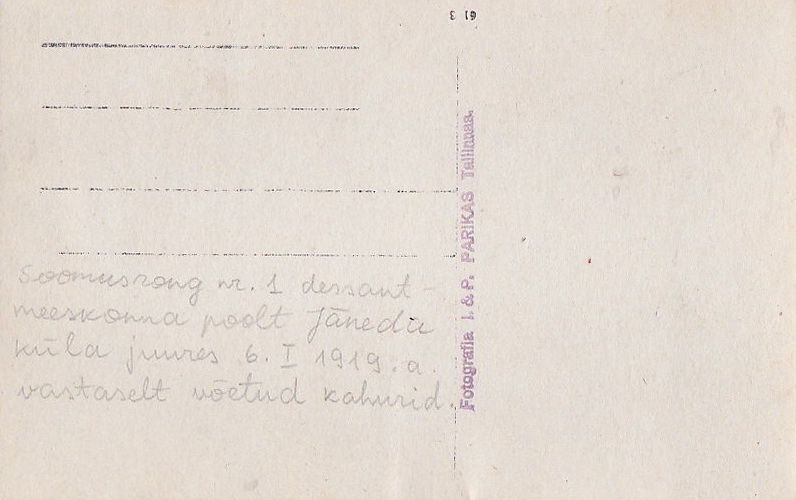 61 3
Fotografia I. & P. PARIKAS Tallinnas.
Soomusrong nr. 1 dessant-
meeskonna poolt Jäneda
küla juures 6. I 1919. a.
vastaselt võetud kahurid.